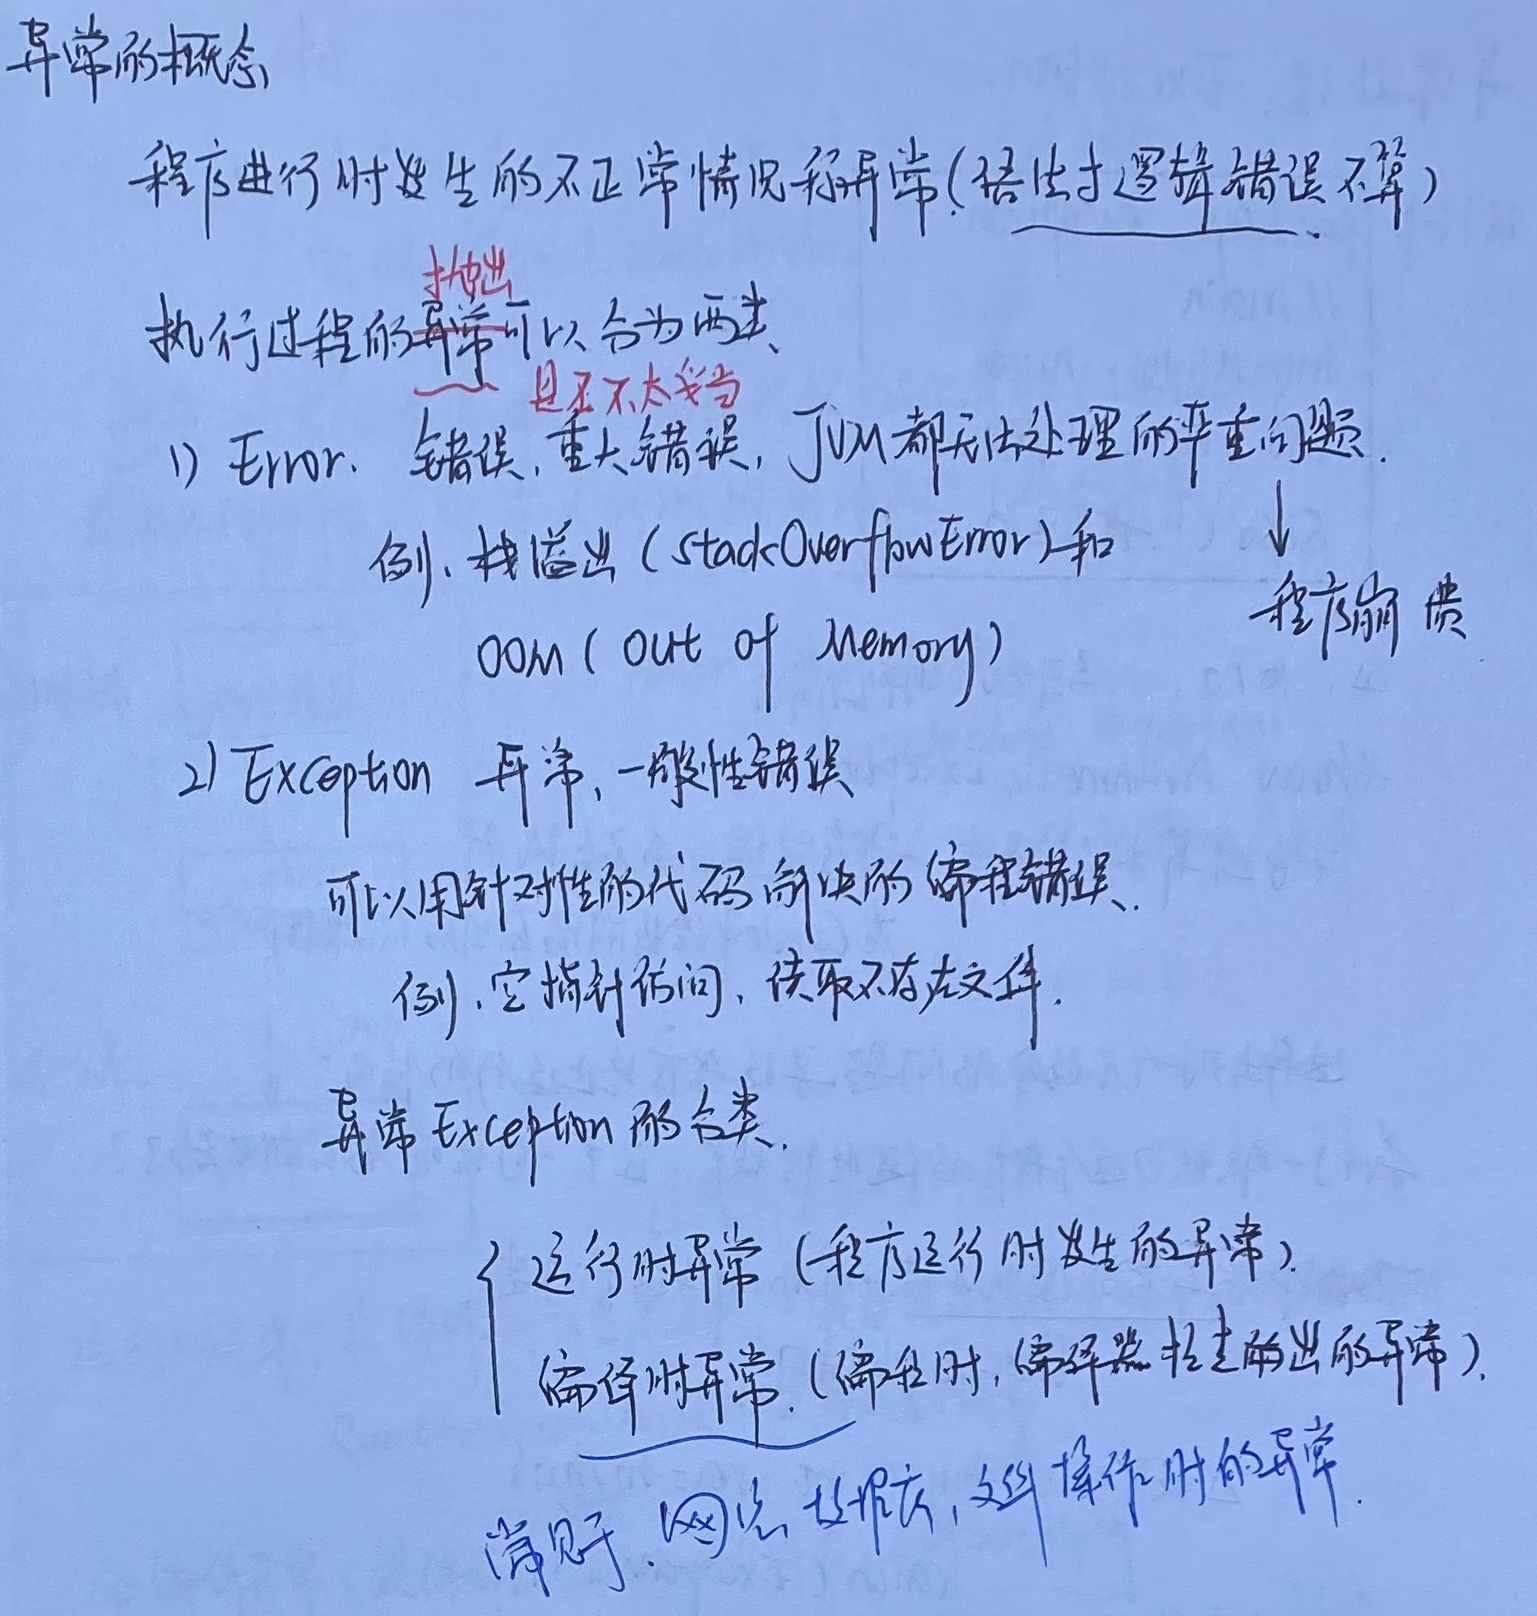 异常的概念
程序进行时发生的不正常情况称异常(语法与逻辑错误不算)
抛出
执行过程的异常可以分为两类、
是否不太妥当
1) Error. 错误,重大错误,JVM都无法处理的严重问题.
例、栈溢出(StackOverflowError)和
程序崩溃
OOM(Out of Memory)
2) Exception 异常,一般性错误
可以用针对性的代码解决的编程错误.
例、空指针访问,读取不存在文件.
异常Exception的分类.
运行时异常(程序运行时发生的异常).
编译时异常.(编程时,编译器检查出的异常).
常见于.网络,数据库,文件操作时的异常.